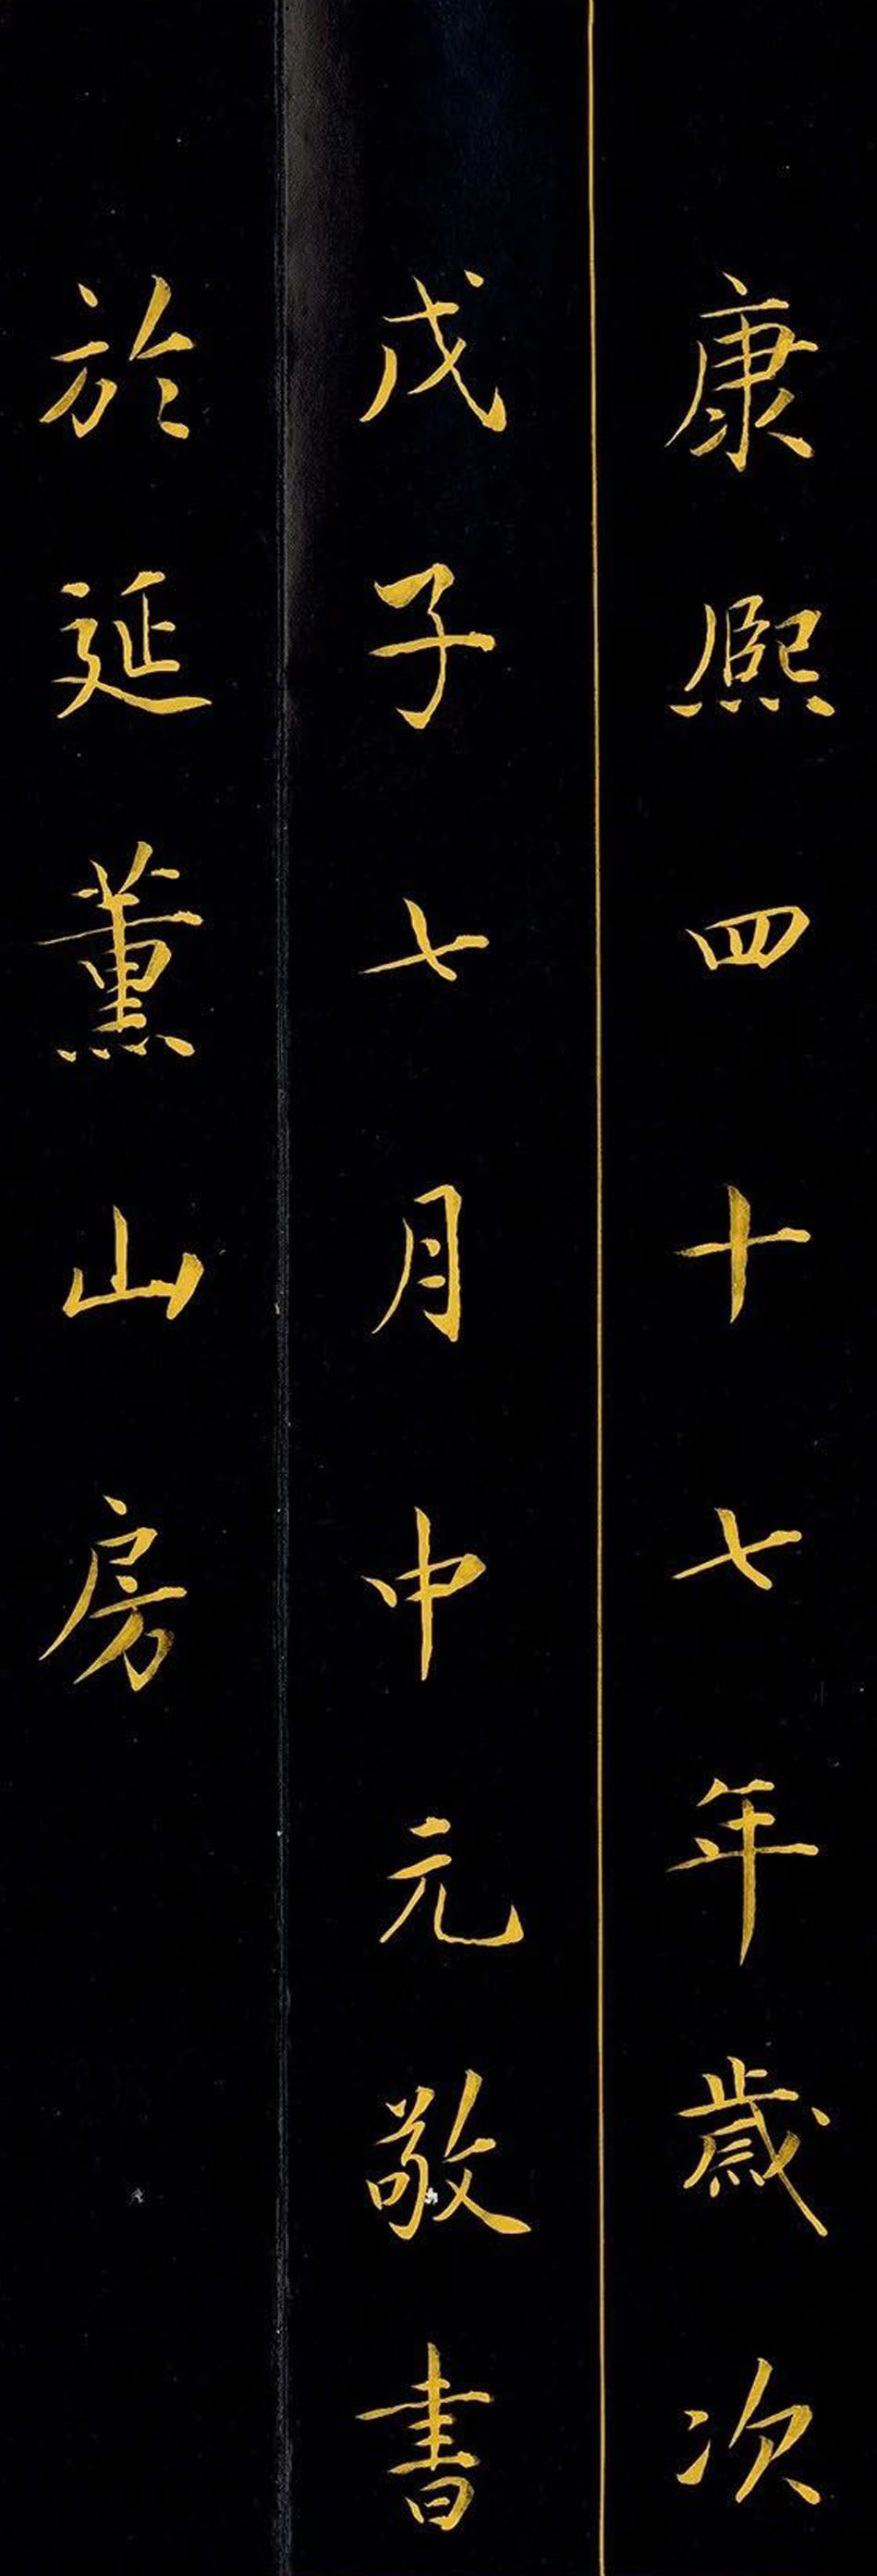 康熙四十七年歲次
戊子七月中元敬書
於延薰山房